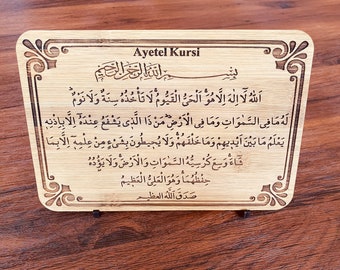 Ayetel Kursi
بِسْمِ اللهِ الرَّحْمٰنِ الرَّحِيمِ
اَللهُ لَا اِلٰهَ اِلَّا هُوَ اَلْحَيُّ الْقَيُّومُ لَا تَأْخُذُهُ سِنَةٌ وَلَا نَوْمٌ
لَهُ مَا فِي السَّمٰوَاتِ وَمَا فِي الْاَرْضِ مَنْ ذَا الَّذِي يَشْفَعُ عِنْدَهُ اِلَّا بِاِذْنِهِ
يَعْلَمُ مَا بَيْنَ اَيْدِيهِمْ وَمَا خَلْفَهُمْ وَلَا يُحِيطُونَ بِشَيْءٍ مِنْ عِلْمِهِ اِلَّا بِمَا
شَاءَ وَسِعَ كُرْسِيُّهُ السَّمٰوَاتِ وَالْاَرْضَ وَلَا يَؤُدُهُ
حِفْظُهُمَا وَهُوَ الْعَلِيُّ الْعَظِيمُ
صَدَقَ اللهُ الْعَظِيمُ